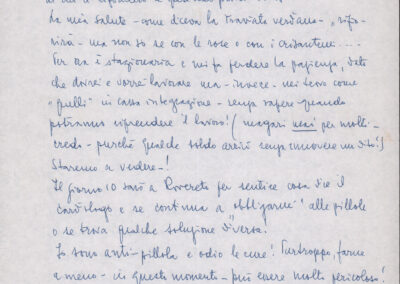 La mia salute - come diceva la Traviata verdiana - "rifio-
rirà - ma non so se con le rose o con i crisantemi ....
Per ora è stazionaria e mi fa perdere la pazienza, dato
che dovrei e vorrei lavorare ma - invece - mi trovo come
"quelli" in cassa integrazione - senza sapere quando
potranno riprendere il lavoro! (magari mai per molti -
credo - purché qualche soldo arrivi senza muovere un dito!)
Staremo a vedere -!
Il giorno 10 sarò a Rovereto per sentire cosa dice il
cardiologo e se continua a "obbligarmi" alle pillole
o se trova qualche soluzione diversa!
Io sono anti-pillola e odio le cure! Purtroppo, farne
a meno - in questo momento - può essere molto pericoloso!